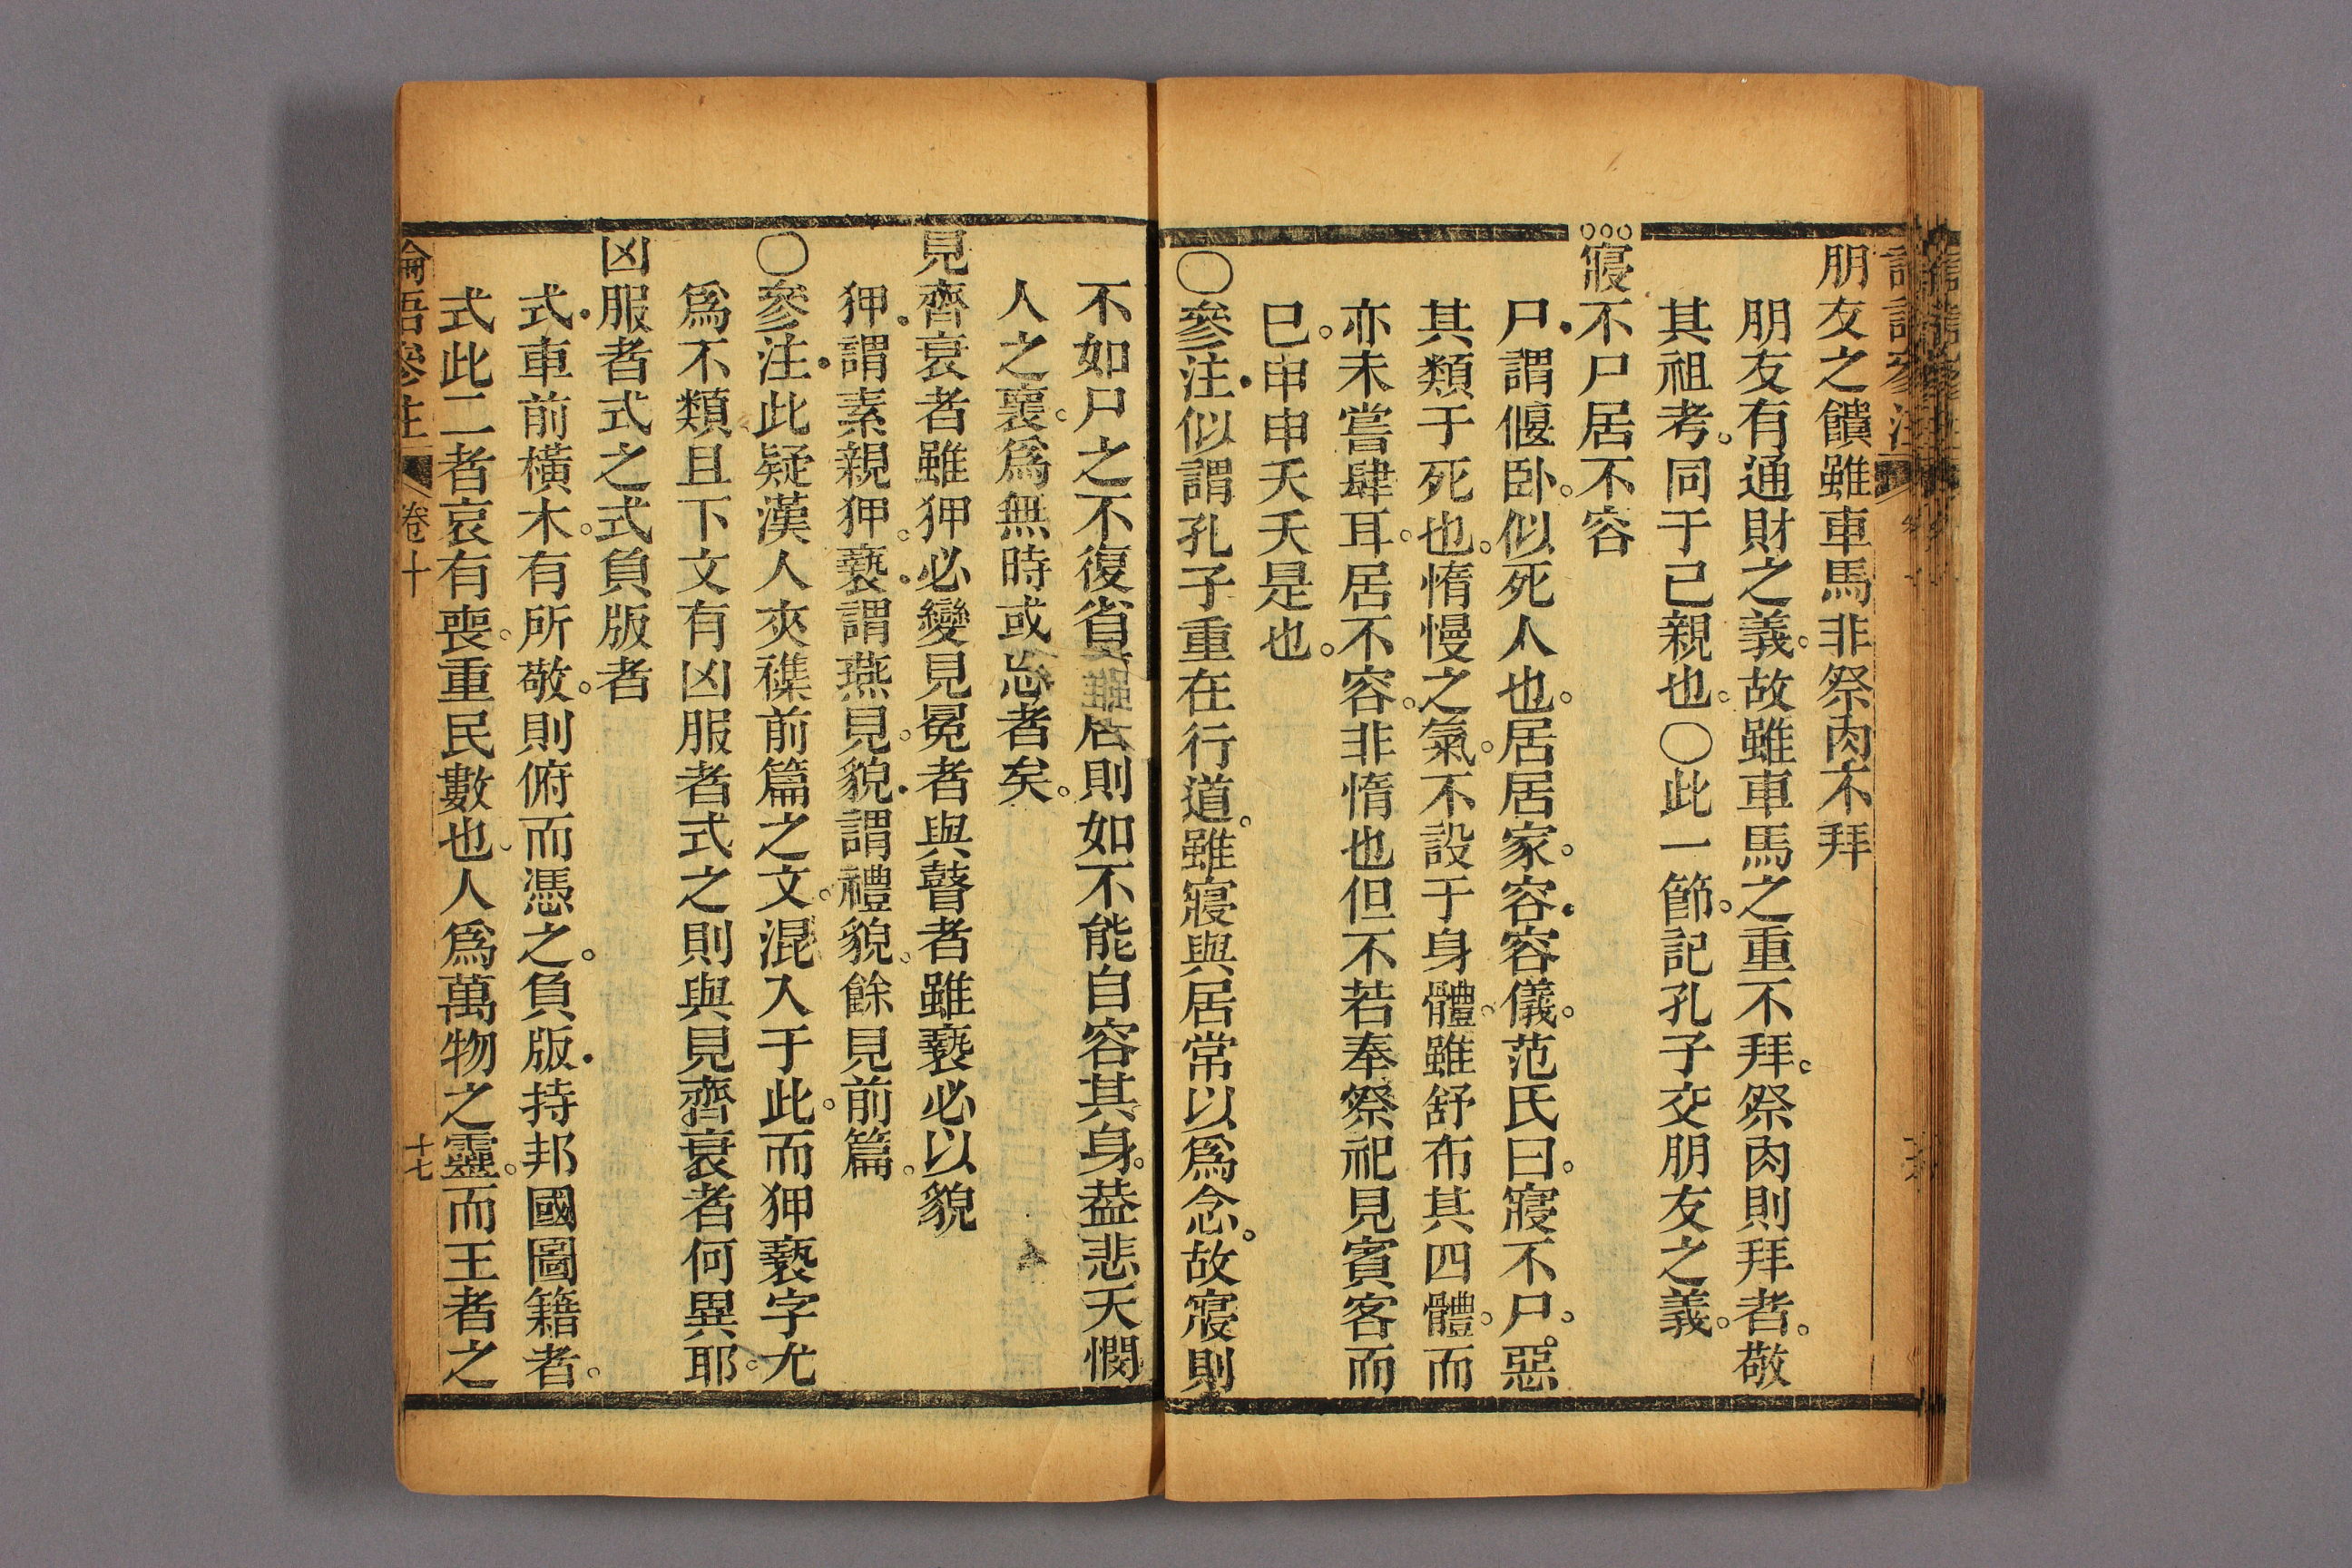 朋友之饋雖車馬非祭肉不拜
朋友有通財之義。故雖車馬之重不拜。祭肉則拜者。敬
其祖考。同于己親也。〇此一節。記孔子交朋友之義。
寢不尸居不容
尸。謂偃臥。似死人也。居居家。容。容儀。范氏曰。寢不尸。惡
其類于死也。惰慢之氣。不設于身體。雖舒布其四體。而
亦未嘗肆耳。居不容。非惰也但不若奉祭祀見賓客而
已。申申夭夭是也。
〇參注。似謂孔子重在行道。雖寢與居常以爲念。故寢則
不如尸之不復省。居則如不能自容其身。葢悲天憫
人之襄。爲無時或忘者矣。
見齊衰者雖狎必變見冕者與瞽者雖褻必以貌
狎。謂素親狎。褻。謂燕見。貌。謂禮貌。餘見前篇。
〇參注。此疑漢人夾襍前篇之文。混入于此。而狎褻字尤
爲不類且下文有凶服者式之則與見齊衰者何異耶。
凶服者式之式負版者
式。車前橫木。有所敬。則俯而憑之。負版。持邦國圖籍者。
式此二者哀有喪。重民數也。人爲萬物之靈。而王者之
論語參注 卷十 十七